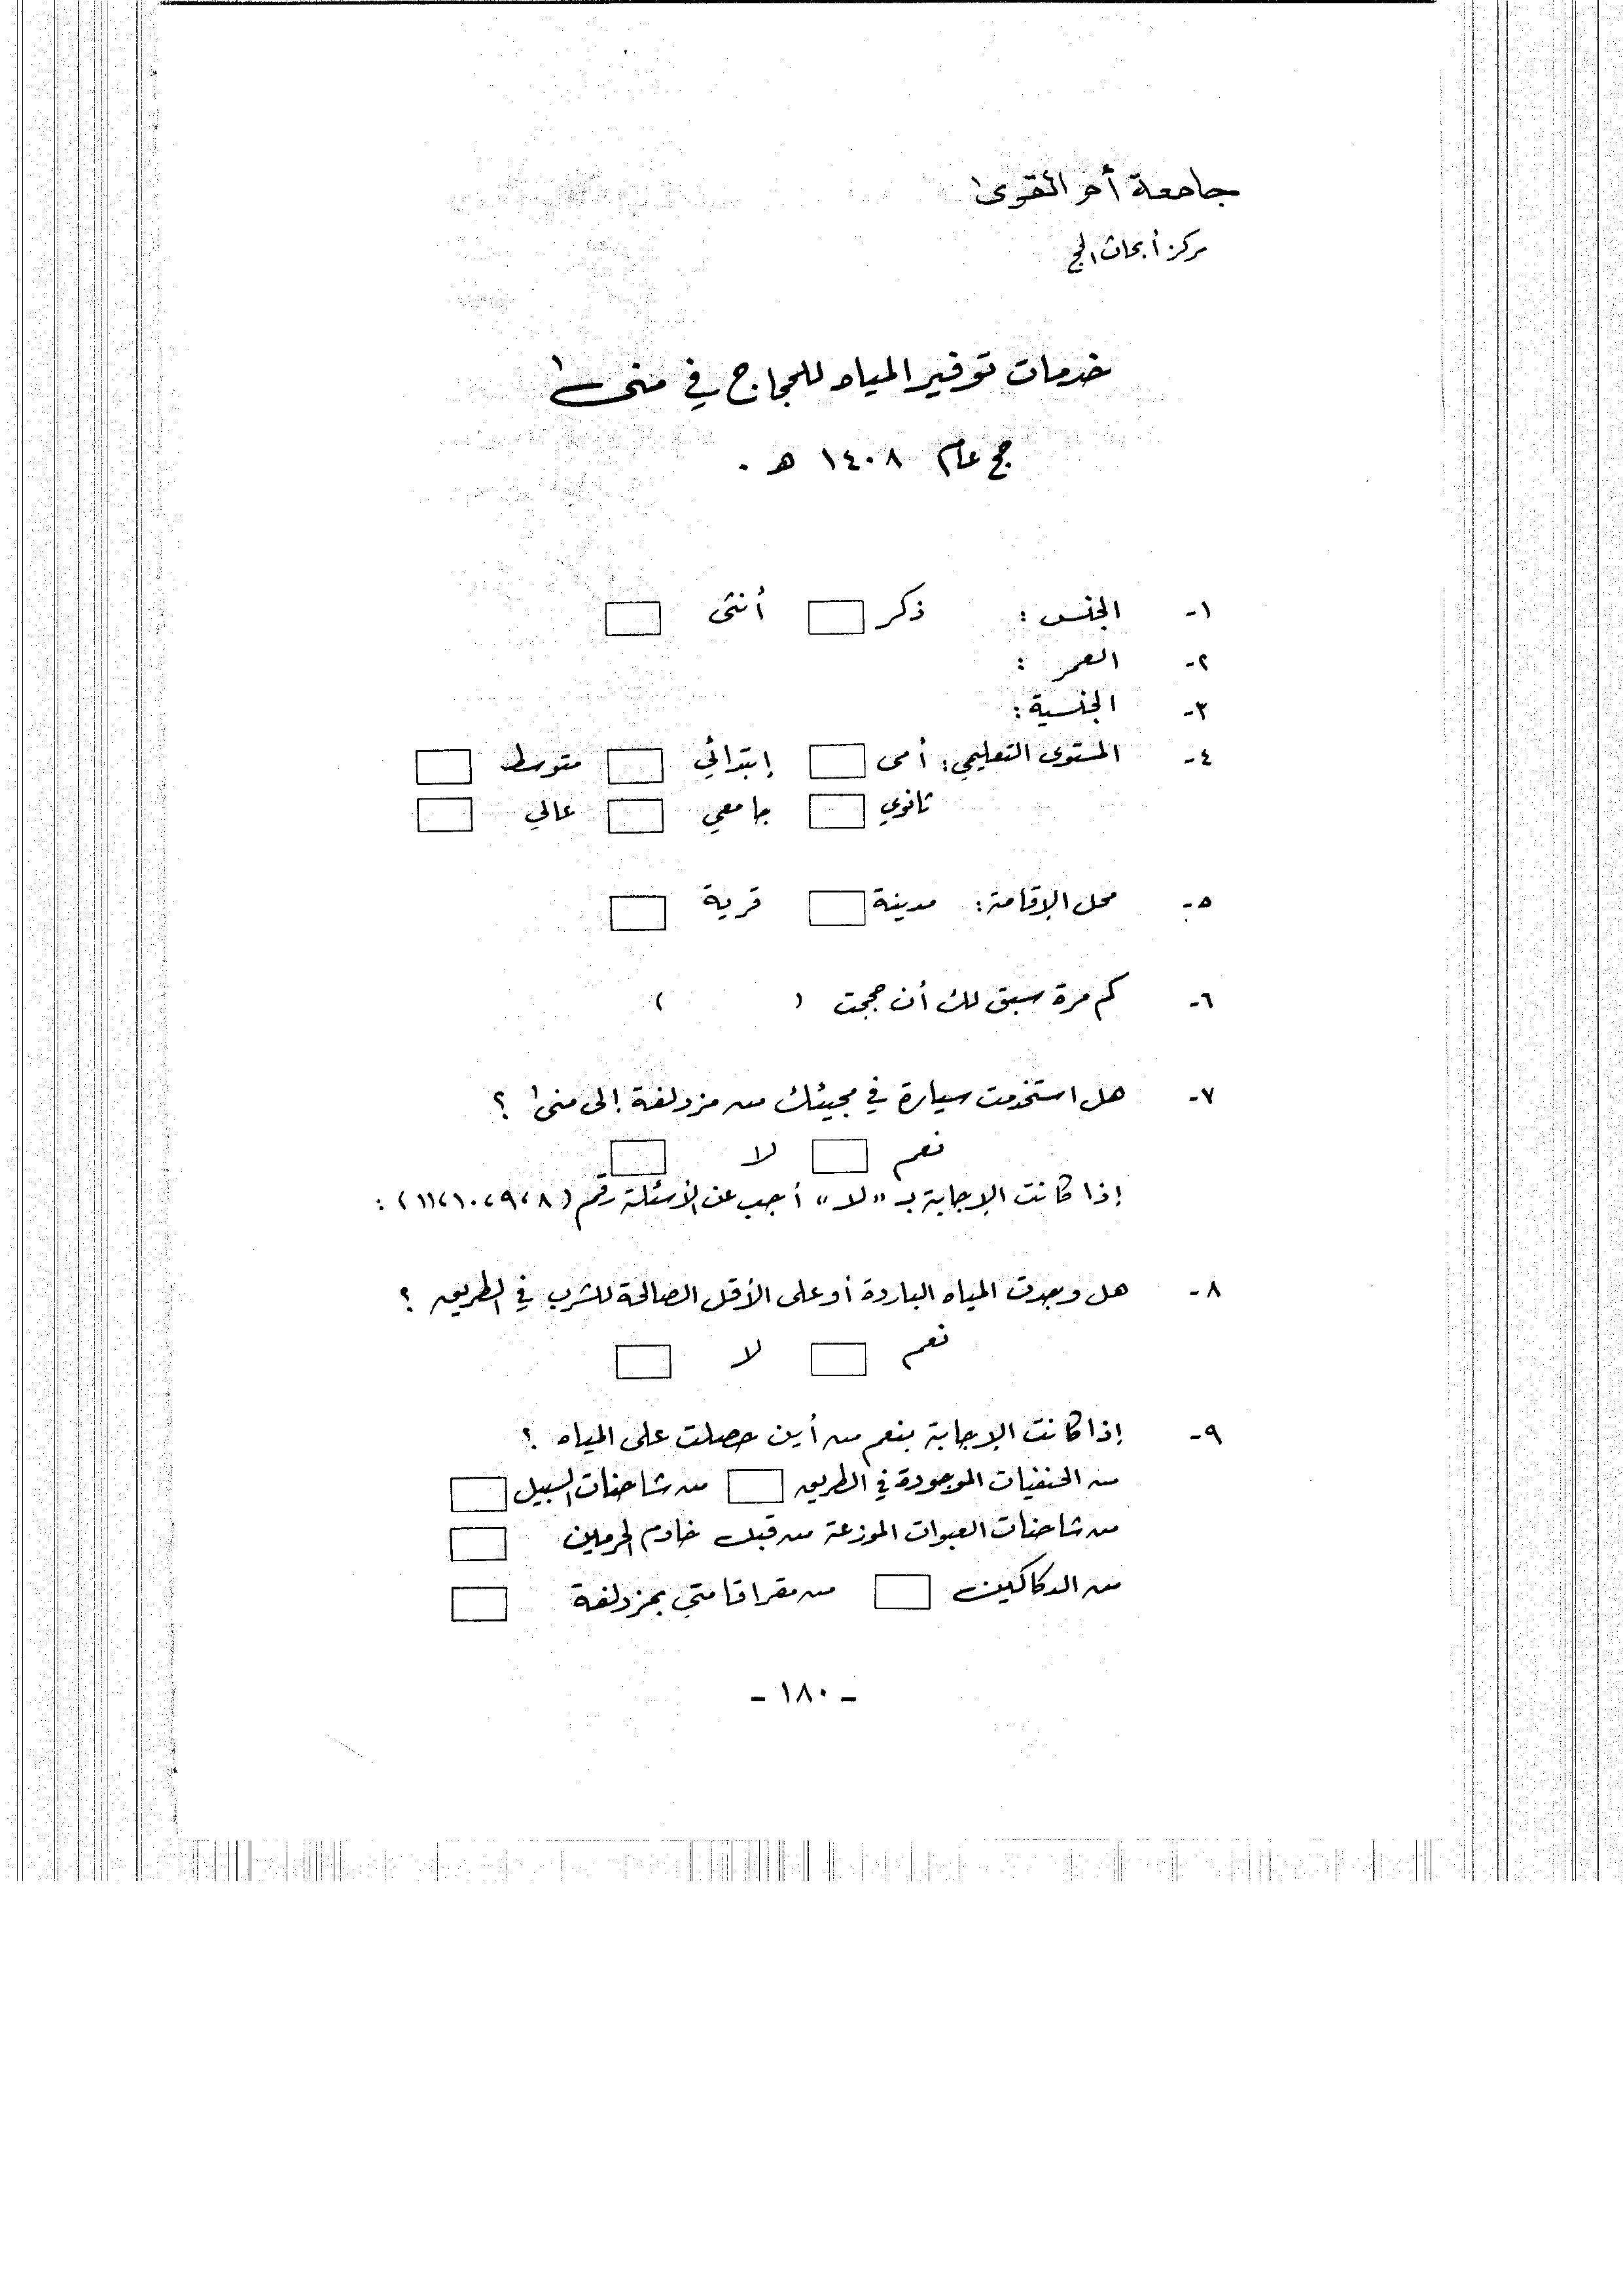 جامعة أم القرى
مركز أبحاث الحج
خدمات توفير المياه للحجاج في منى
حج عام ١٤٠٨ هـ .
١- الجنس : ذكر أنثى
٢- العمر :
٣- الجنسية :
٤- المستوى التعليمي : أمى إبتدائي متوسط
ثانوي جامعي عالي
٥- محل الإقامة : مدينة قرية
٦- كم مرة سبق لك أن حججت ( )
٧- هل استخدمت سيارة في مجيئك من مزدلفة إلى منى ؟
نعم لا
إذا كانت الإجابة بـ "لا" أجب عن الأسئلة رقم (٨،٩،١٠،١١) :
٨- هل وجدت المياه الباردة أو على الأقل الصالحة للشرب في الطريق ؟
نعم لا
٩- إذا كانت الإجابة بنعم من أين حصلت على المياه ؟
من الحنفيات الموجودة في الطريق من شاحنات السبيل
من شاحنات العبوات الموزعة من قبل خادم الحرمين
من الدكاكين من مقر اقامتي بمزدلفة
- ١٨٠ -